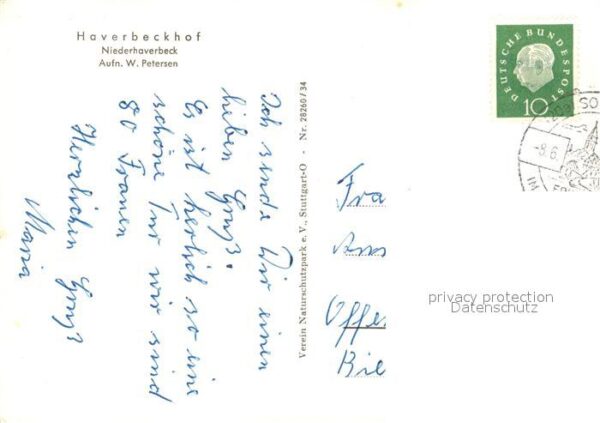 Haverbeckhof
Niederhaverbeck
Aufn. W. Petersen
Ich sende Dir einen
lieben Gruß.
Es ist herlich so eine
schöne Tur wir sind
80 Frauen
Herzlichen Gruß
Maria
Verein Naturschutzpark e. V., Stuttgart-O · Nr. 28260/34
DEUTSCHE BUNDESPOST
10
SO
-8.6.
IM
Fra
Am
Offe
Bie
privacy protection
Datenschutz